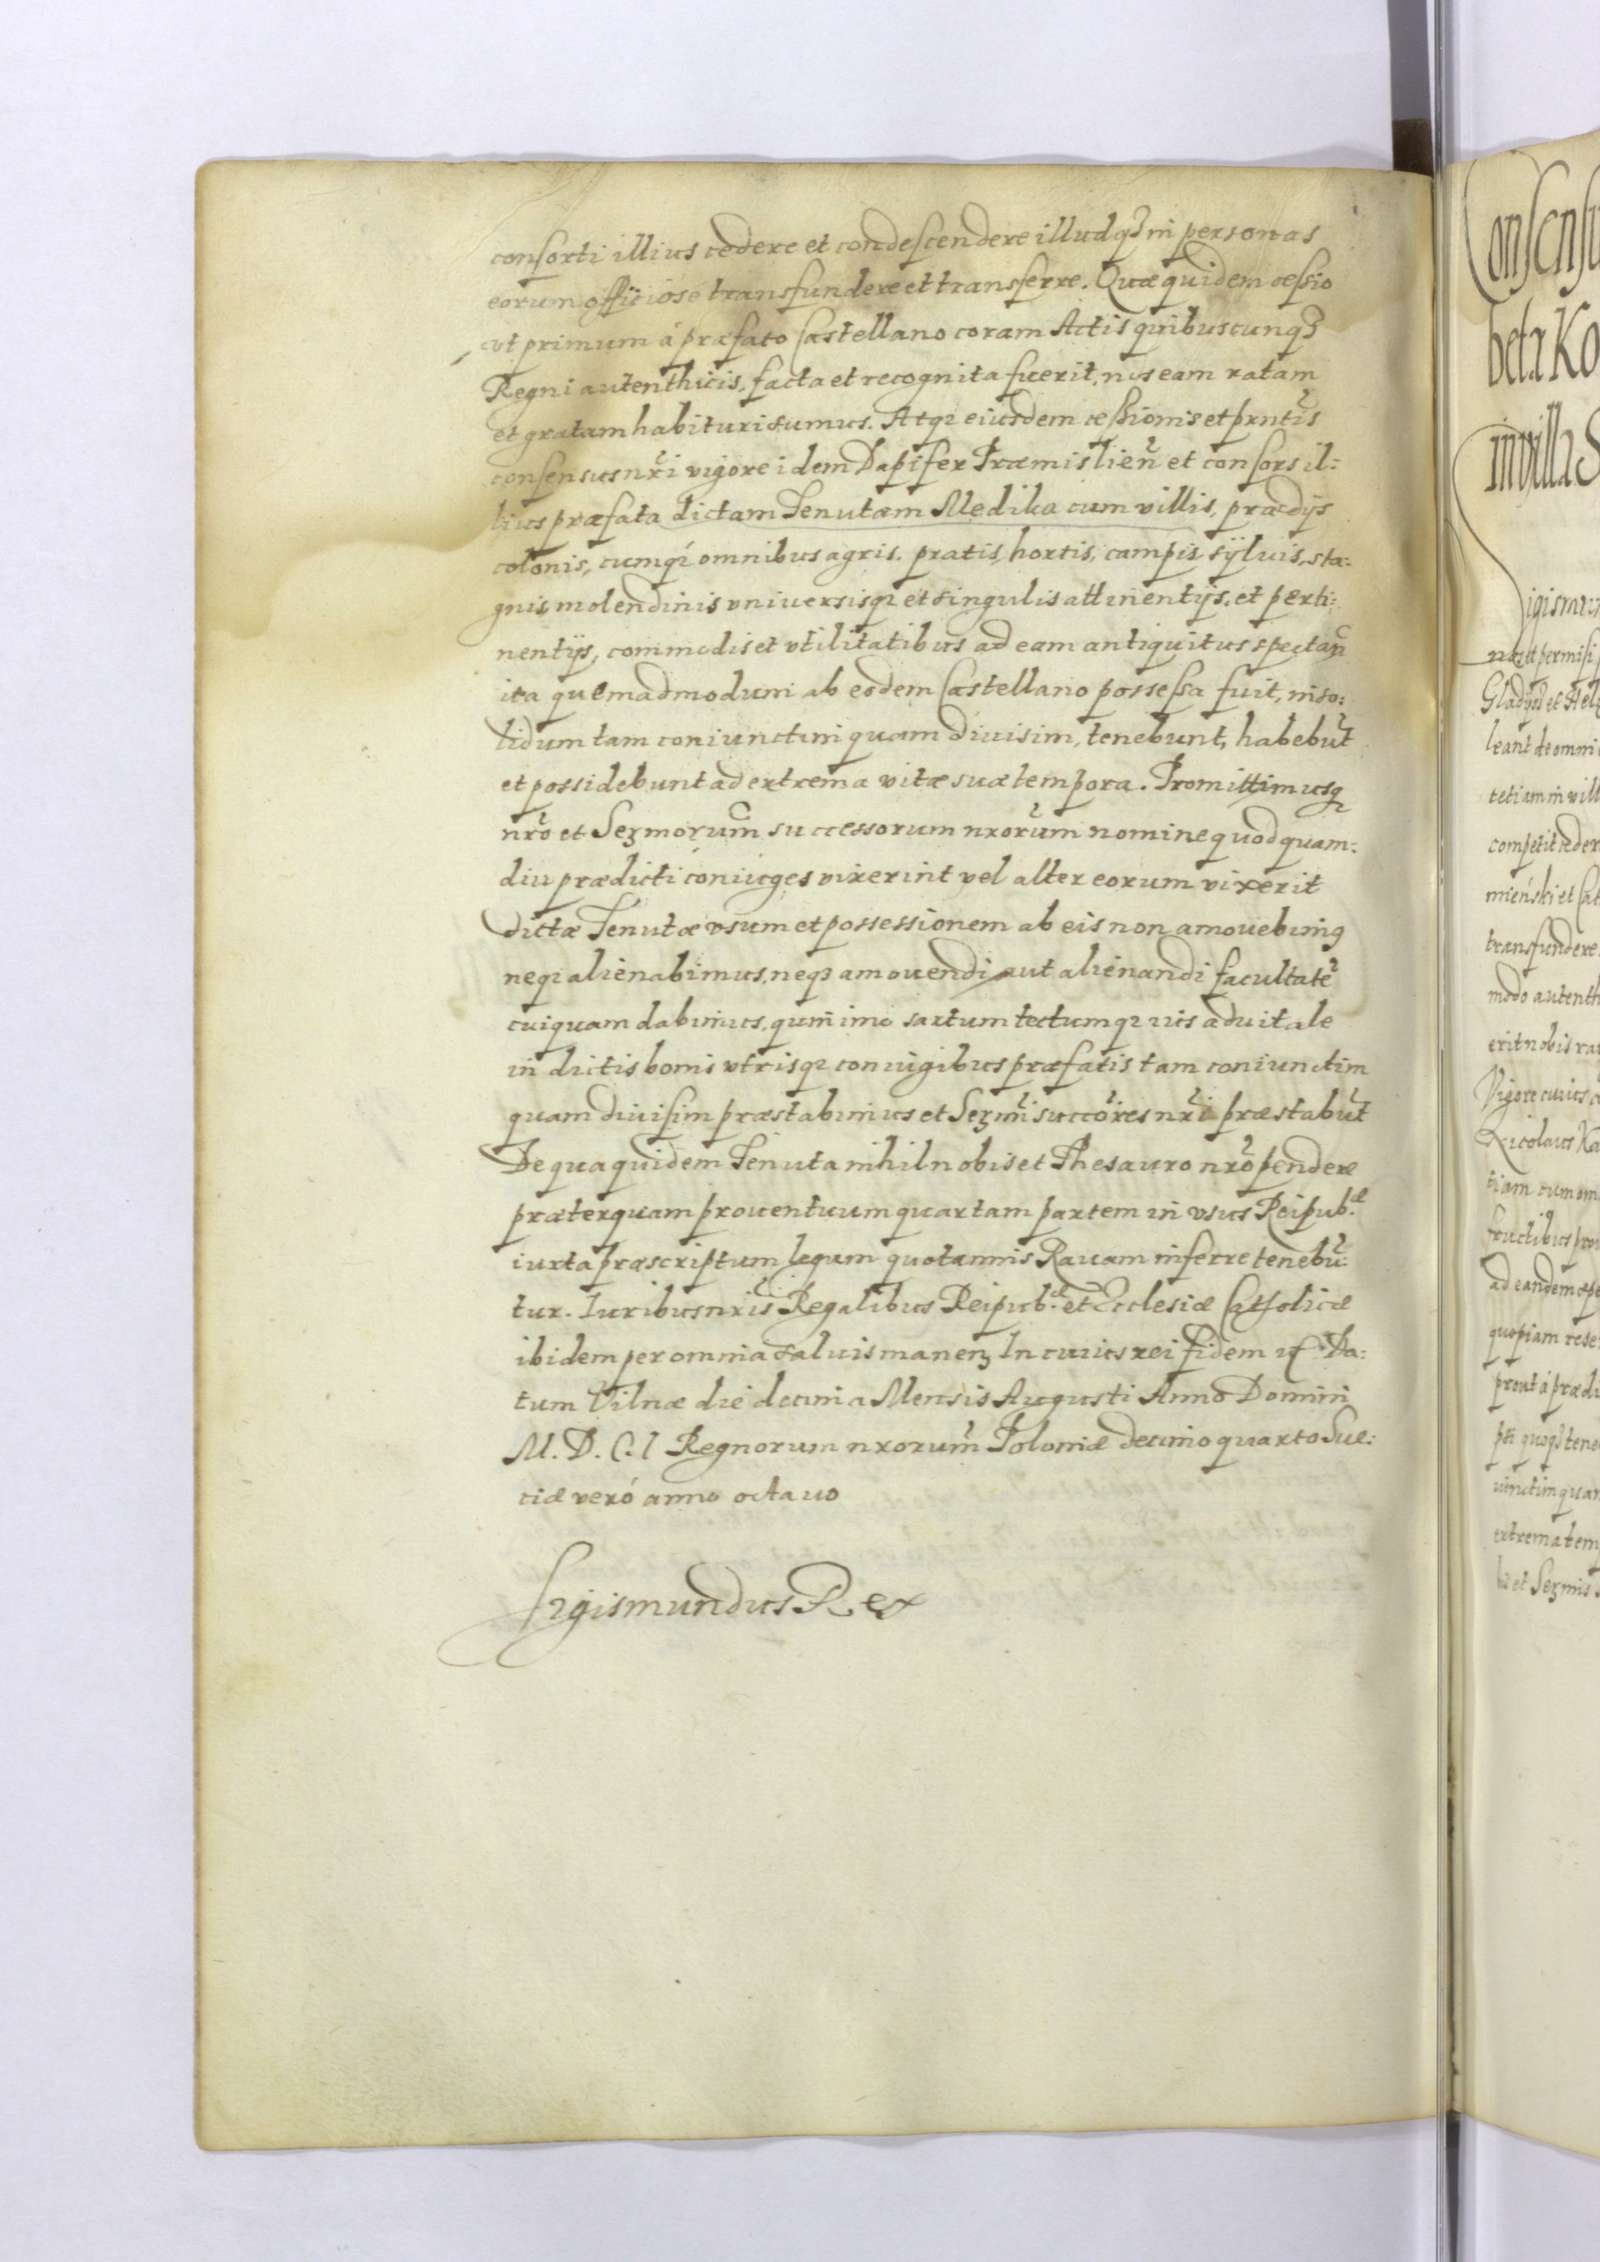 consorti illius cedere et condescendere illudq̃ in personas
eorum officiosé transfundere et transferre. Quæ quidem cessio
vt primum á præfato Castellano coram Actis quibuscunq̃
Regni autenthicis, facta et recognita fuerit, nos eam ratam
et gratam habituri sumus. Atq̃ eiusdem cessionis et prntĩs
consensus nr̃i vigore idem Dapifer Præmislien̄ et consors il:
lius præfata dictam Tenutam Medika cum villis, prædijs
colonis, cumq̃ omnibus agris. pratis, hortis, campis syluis, sta:
gnis molendinis vniuersisq̃ et singulis attinentijs, et perti:
nentijs, commodis et vtilitatibus ad eam antiquitus spectan̄
ita quemadmodum ab eodem Castellano possessa fuit, in so:
lidum tam coniunctim quam diuisim, tenebunt, habebũt
et possidebunt ad extrema vitæ suæ tempora. Promittimusq̃
nr̃o et Serm̄orum successorum nrorũm nomine quod quam:
diu prædicti coniuges vixerint vel alter eorum vixerit
dictæ Tenutæ vsum et possessionem ab eis non amouebimꝰ
neq̃ alienabimus, neq̃ amouendi aut alienandi facultatẽ
cuiquam dabimus, quin̄imo sartum tectumq̃ ius aduitale
in dictis bonis vtrisq̃ coniugibus præfatis tam coniunctim
quam diuisim præstabimus et Serm̃i succõres nr̃i præstabũt
De qua quidem Tenuta nihil nobis et Thesauro nr̃o pendere
præterquam prouentuum quartam partem in vsus Reipub.æ
iuxta præscriptum legum quotannis Rauam inferre tenebũ:
tur. Iuribus nr̃is Regalibus Reipub.æ et Ecclesiæ Catholicæ
ibidem per omnia saluis manen̄ In cuius rei fidem &c. Da:
tum Vilnæ die decima Mensis Augusti Anno Domini
M. D. C. I Regnorum nrorũm Poloniæ decimo quarto Sue:
ciæ veró anno octauo
Sigismundus Rex
onsensu
beta Ko
in villa S
igismun
Gladysz et Hel
leant de omni
tetiam in vill
competit ceder
mieński et Cat
transfundere
modo autenth
erit nobis ra
Vigore cuius
Nicolaus Ka
tiam cum om
fructibus prou
ad eandem
quopiam rese
prout á prædi
pti quoq̃ tene
iunctim quam
extrema tem
et Serm̄is